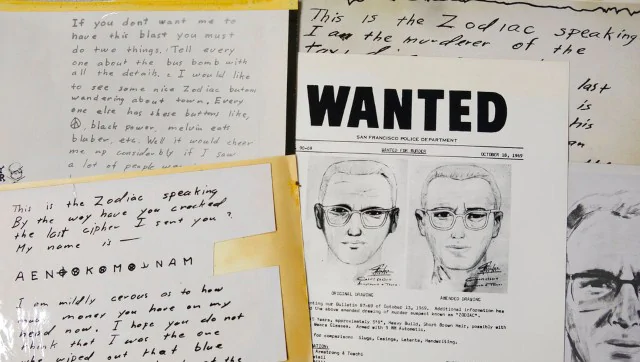 If you dont want me to
have this blast you must
do two things. Tell every
one about the bus bomb with
all the details. I would like
to see some nice Zodiac butons
wandering about town. Every
one else has these buttons like,
black power, melvin eats
bluber, etc. Well it would cheer
me up considerably if I saw
a lot of people
This is the Zodiac speaking
I am the murderer of the
last
is
his
an
This is the Zodiac speaking
By the way have you cracked
the last cipher I sent you ?
My name is —
AEN⊕⊗K⊗M⊗ NAM
I am mildly cerous as to how
much money you have on my
head now. I hope you do not
think that I was the one
who wiped out that blue
WANTED
SAN FRANCISCO POLICE DEPARTMENT
WANTED FOR MURDER OCTOBER 18, 1969
ORIGINAL DRAWING AMENDED DRAWING
our Bulletin 87-69 of October 13, 1969. Additional information has
the above amended drawing of murder suspect known as "ZODIAC".
Years, approximately 5'8", Heavy Build, Short Brown Hair, possibly with
Glasses. Armed with 9 MM Automatic.
for comparison: Slugs, Casings, Latents, Handwriting.
Armstrong & Toschi